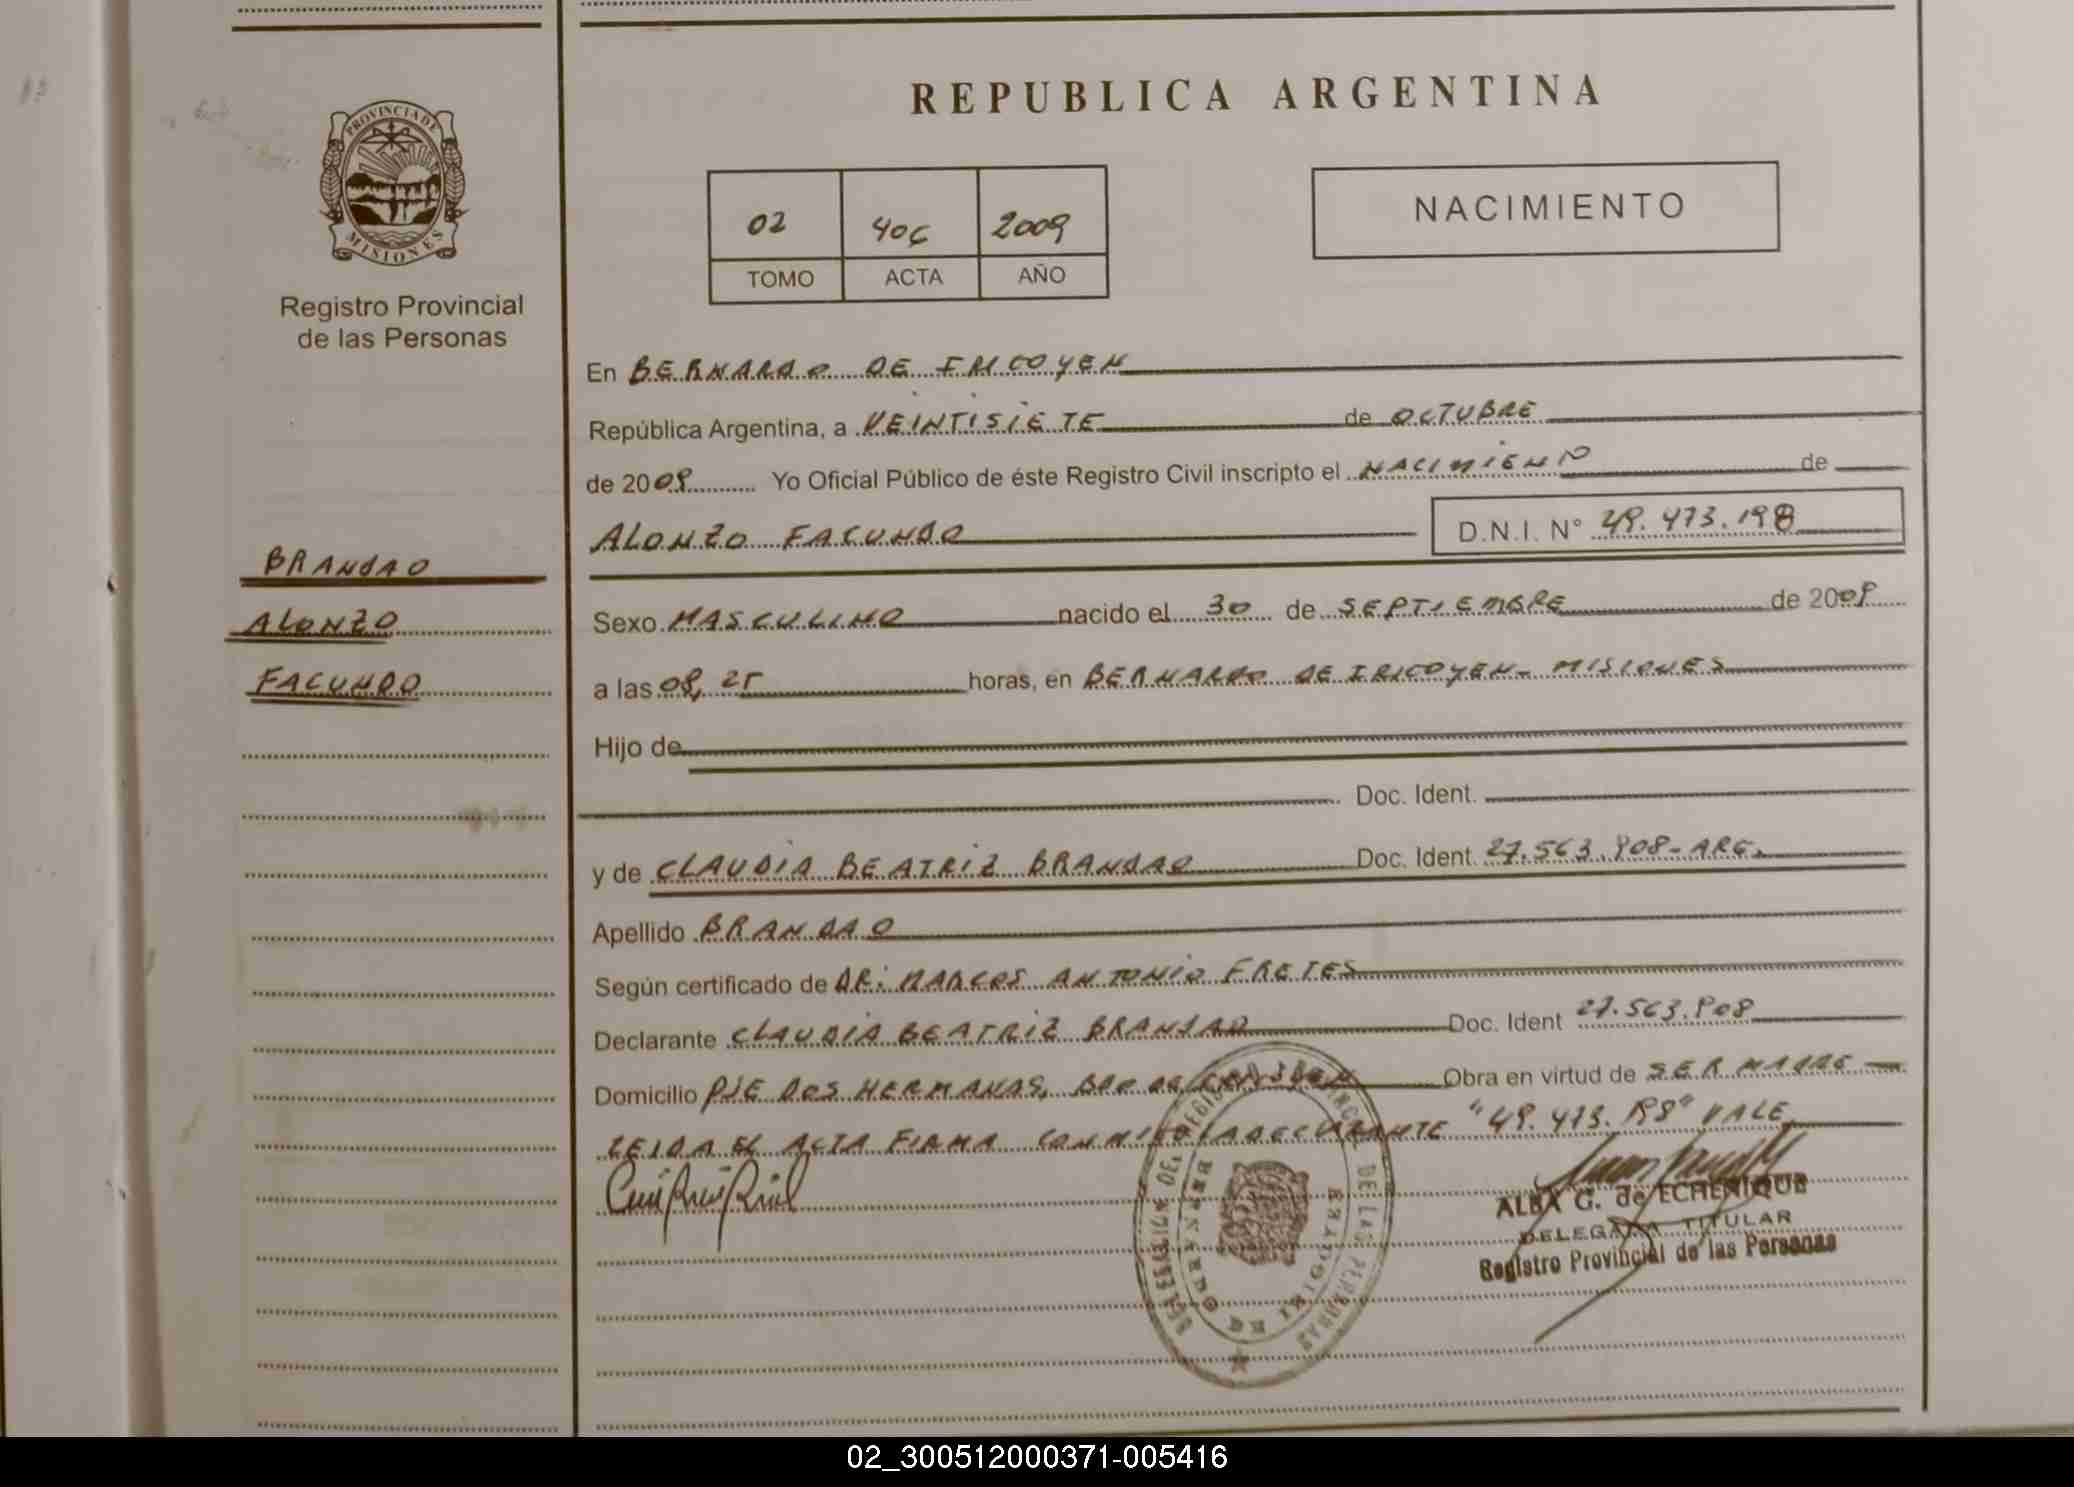 REPUBLICA ARGENTINA
PROVINCIA DE
MISIONES
Registro Provincial
de las Personas
02 406 2009
TOMO ACTA AÑO
NACIMIENTO
En BERNARDO DE IRIGOYEN
República Argentina, a VEINTISIETE de OCTUBRE
de 2009 Yo Oficial Público de éste Registro Civil inscripto el NACIMIENTO de
ALONZO FACUNDO D.N.I. N° 49.473.198
BRANDAO
ALONZO
FACUNDO
Sexo MASCULINO nacido el 30 de SEPTIEMBRE de 2009
a las 08,25 horas, en BERNARDO DE IRIGOYEN - MISIONES
Hijo de
Doc. Ident.
y de CLAUDIA BEATRIZ BRANDAO Doc. Ident. 27.563.908-ARG.
Apellido BRANDAO
Según certificado de DR: MARCOS ANTONIO FRETES
Declarante CLAUDIA BEATRIZ BRANDAO Doc. Ident 27.563.908
Domicilio PJE DOS HERMANAS, BDO DE IRIGOYEN Obra en virtud de SER MADRE
LEIDA EL ACTA FIRMA CONMIGO LA DECLARANTE "49.473.198" VALE
ALBA G. de ECHENIQUE
DELEGADA TITULAR
Registro Provincial de las Personas
02_300512000371-005416